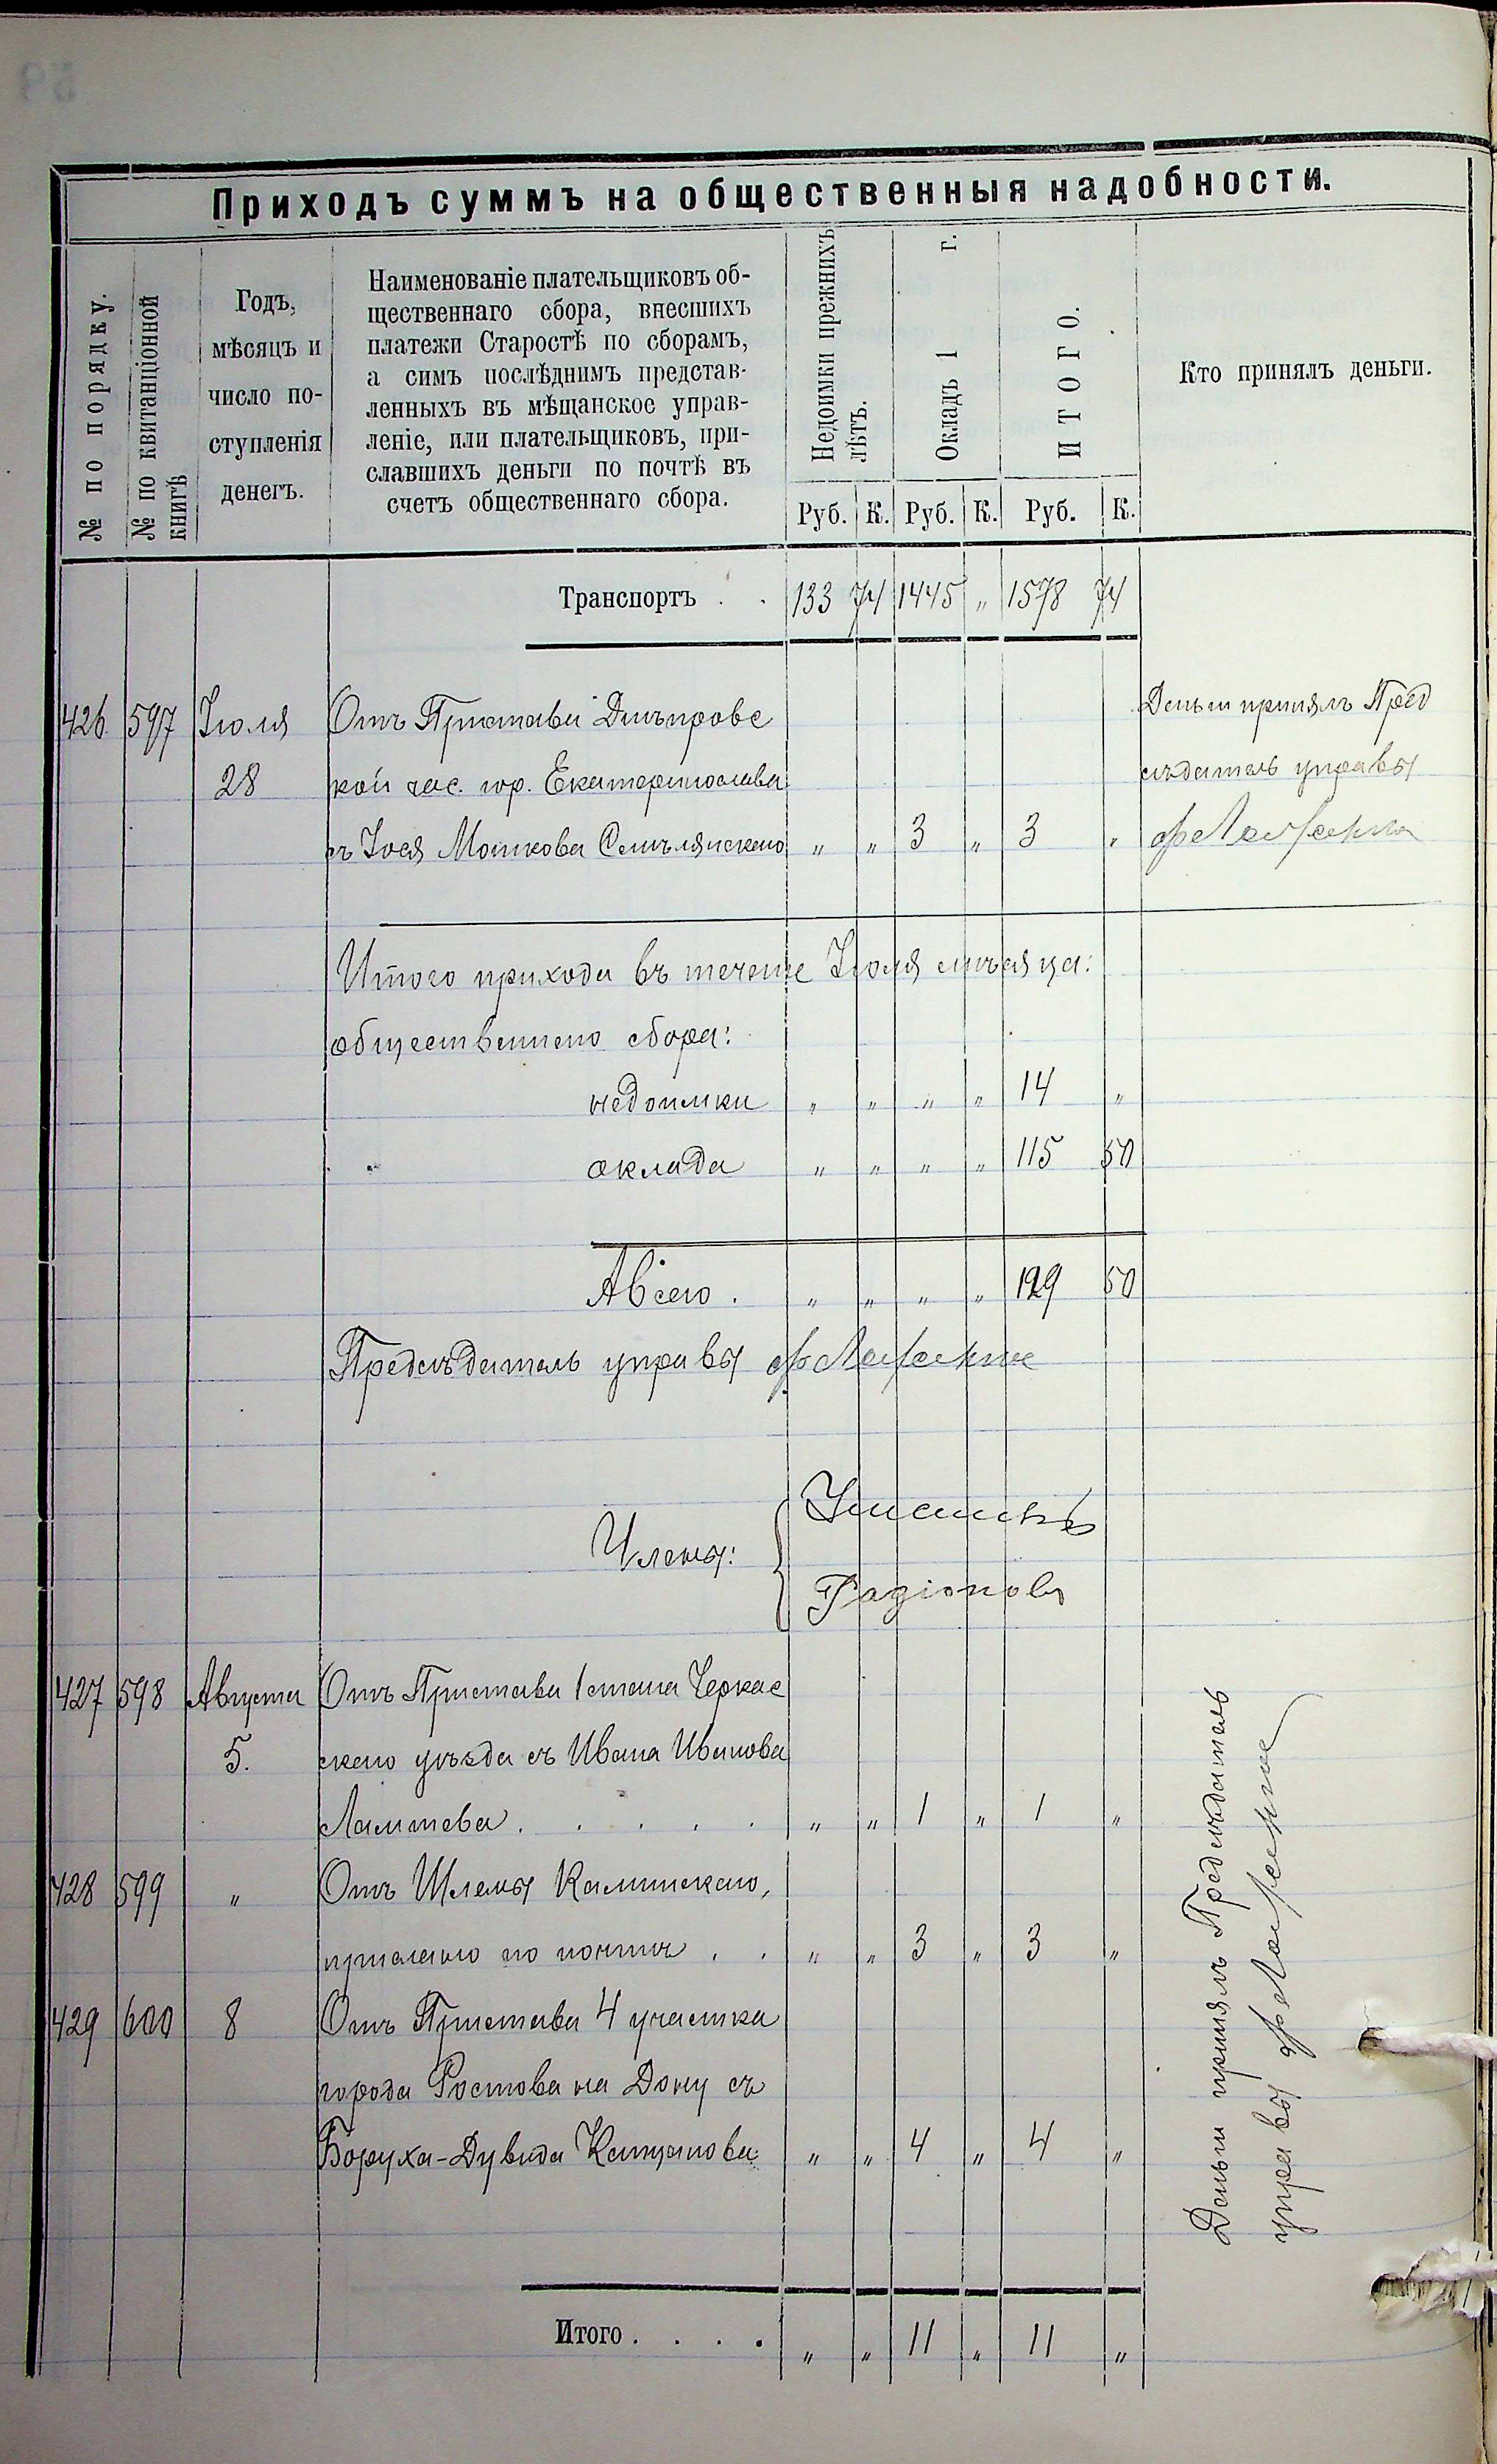 Приходъ суммъ на общественныя надобности.
№ по порядку.
№ по квитанціонной книгѣ
Годъ,
мѣсяцъ и
число по-
ступленія
денегъ.
Наименованіе плательщиковъ об-
щественнаго сбора, внесшихъ
платежи Старостѣ по сборамъ,
а симъ послѣднимъ представ-
ленныхъ въ мѣщанское управ-
леніе, или плательщиковъ, при-
славшихъ деньги по почтѣ въ
счетъ общественнаго сбора.
Недоимки прежнихъ лѣтъ.
Окладъ 1 г.
ИТОГО.
Кто принялъ деньги.
Руб. К. Руб. К. Руб. К.
Транспортъ . . 133 74 1445 „ 1578 74
426 597 Іюля Отъ Пристава Днѣпровс Деньги принялъ Пред
28 кой час. гор. Екатеринослава сѣдатель управы
съ Іося Мошкова Смѣлянскаго „ „ 3 „ 3 „
Итого прихода въ теченіе Іюля мѣсяца:
общественнаго сбора:
недоимки „ „ „ „ 14 „
оклада „ „ „ „ 115 50
А всего . „ „ „ „ 129 50
Предсѣдатель управы
Члены:
Радіоновъ
427 598 Августа Отъ Пристава 1 стана Черкас
5. скаго уѣзда съ Ивана Иванова
Ламтева . . . . . „ „ 1 „ 1 „
428 599 „ Отъ Шлемы Каминскаго,
прислано по почтѣ . . „ „ 3 „ 3 „
429 600 8 Отъ Пристава 4 участка
города Ростова на Дону съ
Боруха-Дувида Кацанова „ „ 4 „ 4 „
Деньги принялъ Предсѣдатель
управы
Итого . . . . „ „ 11 „ 11 „